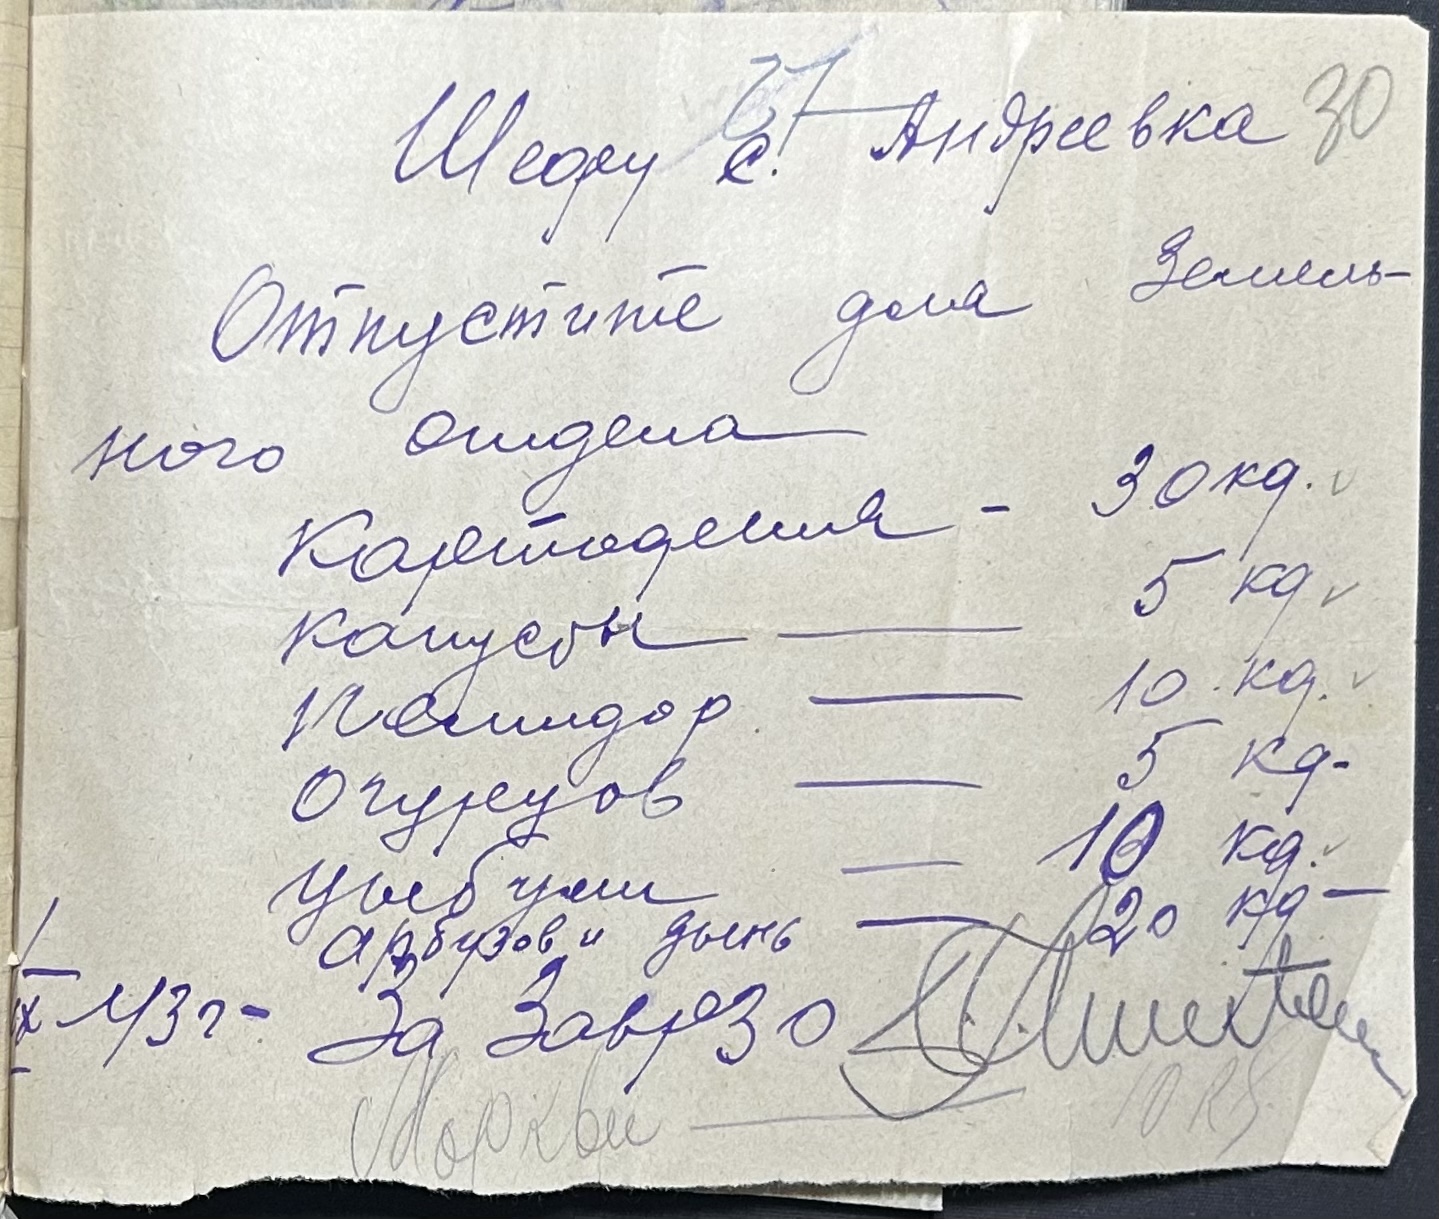 37
30
Шефу с. Андреевка
Отпустите для Земель-
ного отдела
Картофеля - 30 кг.
Капусты — 5 кг.
Помидор — 10 кг.
Огурцов — 5 кг-
Цыбули — 10 кг.
арбузов и дынь — 20 кг —
IX 43г- За Зав рзо
Моркви — 10 кг.